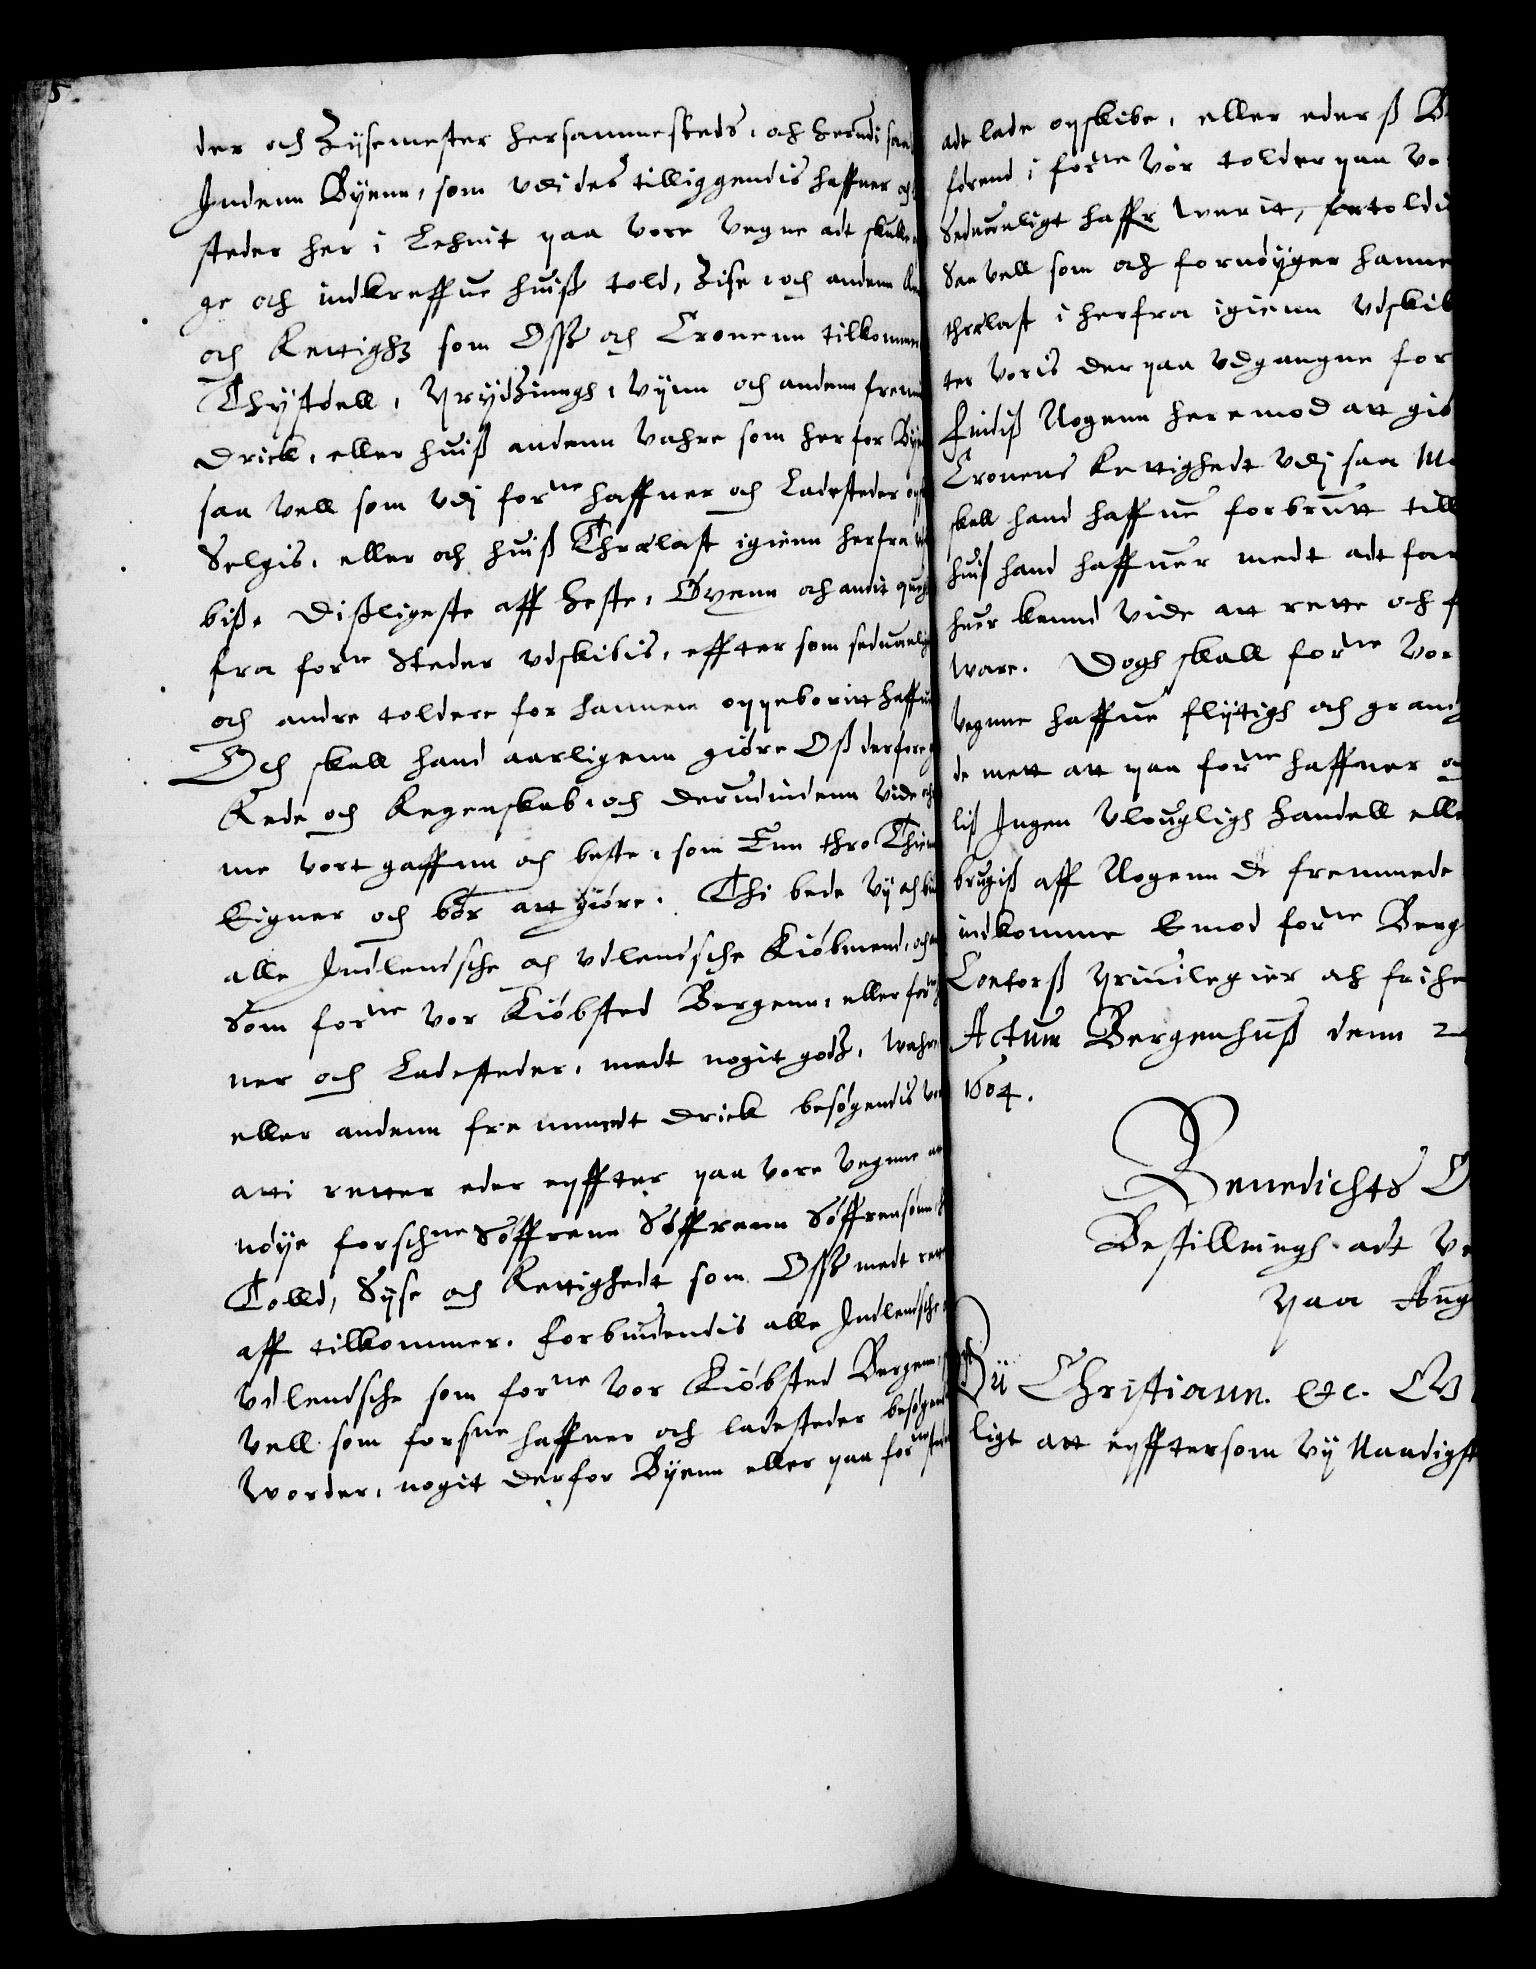 5.
der och Zysemester hersammesteds, och herudi saa
Indenn Byenn, som vdi des tilliggendis haffner och
steder her i Lehnit paa vore Vegne adt skulle
ge och indkreffue huiß told, Zise, och andenn
och Rettighz som Oss och Cronenn tilkomme
Thystoell, Prydzinngh, vynn och andenn fremmit
Drick, eller huiß andenn vahre som her for Byen
saa vell som vdj forne haffner och Ladesteder
Selgis, eller och huiß Threlast igienn herfra
biß. Dißligeste aff Heste, Øxenn och andit
fra forne Steder vdskibis, effter som seduanligt
och andre toldere for hannem oppeboritt haffue
Och skall hand aarligenn giøre Oß derfore
Rede och Regenskab, och derudindenn vide
me vort gaffnn och beste, som Enn thro Thiener
Eigner och bør att giøre. Thi bede Vy och biude
alle Indlendsche och vdlendsche Kiøbmend, och
Som forne vor Kiøbsted Bergenn, eller forne
ner och Ladesteder, medt nogit godz, Wahre
eller andenn fremmedt Drick besøgendis
atti retter eder epffter paa vore vegnne
nøye forschne Søffrenn Søffrenn Søffrensønn
Tolld, Syse och Rettighedt som Oss medt rette
aff tilkommer. Forbiudendis alle Indlendsche
vdlendsche som forne vor Kiøbsted Bergenn,
vell som forsne haffner och ladesteder besøgend
Worder, nogit derfor Byenn eller paa forne steder
adt lade opskibe, eller eders
førend i forne vor tolder paa vo
Seduanligt haffr werit, fortoldi
Saa vell som och fornøyger hanne
threlast i herfra igienn vdskib
ter voris derpaa vdgangne for
findiß Nogenn heremod att giø
Cronens Rettighedt vdj saa
skall hand haffue forbrutt till
huiß hand haffuer medt adt far
huer kannd vide att rette och
ware. Dogh skall forne vor
vegnne haffue flytigh och grang
de mett att paa forne haffner
liß Ingen vlougligh handell elle
brugiß aff Nogenn de fremmede
indkomme Emod forne Berg
Contorß priuilegier och frihe
Actum Bergenhuß denn 2
1604.
Benedichts
Bestillningh adt
paa Aug
Vii Christiann. etc.
ligt att epfftersom vij Naadigst